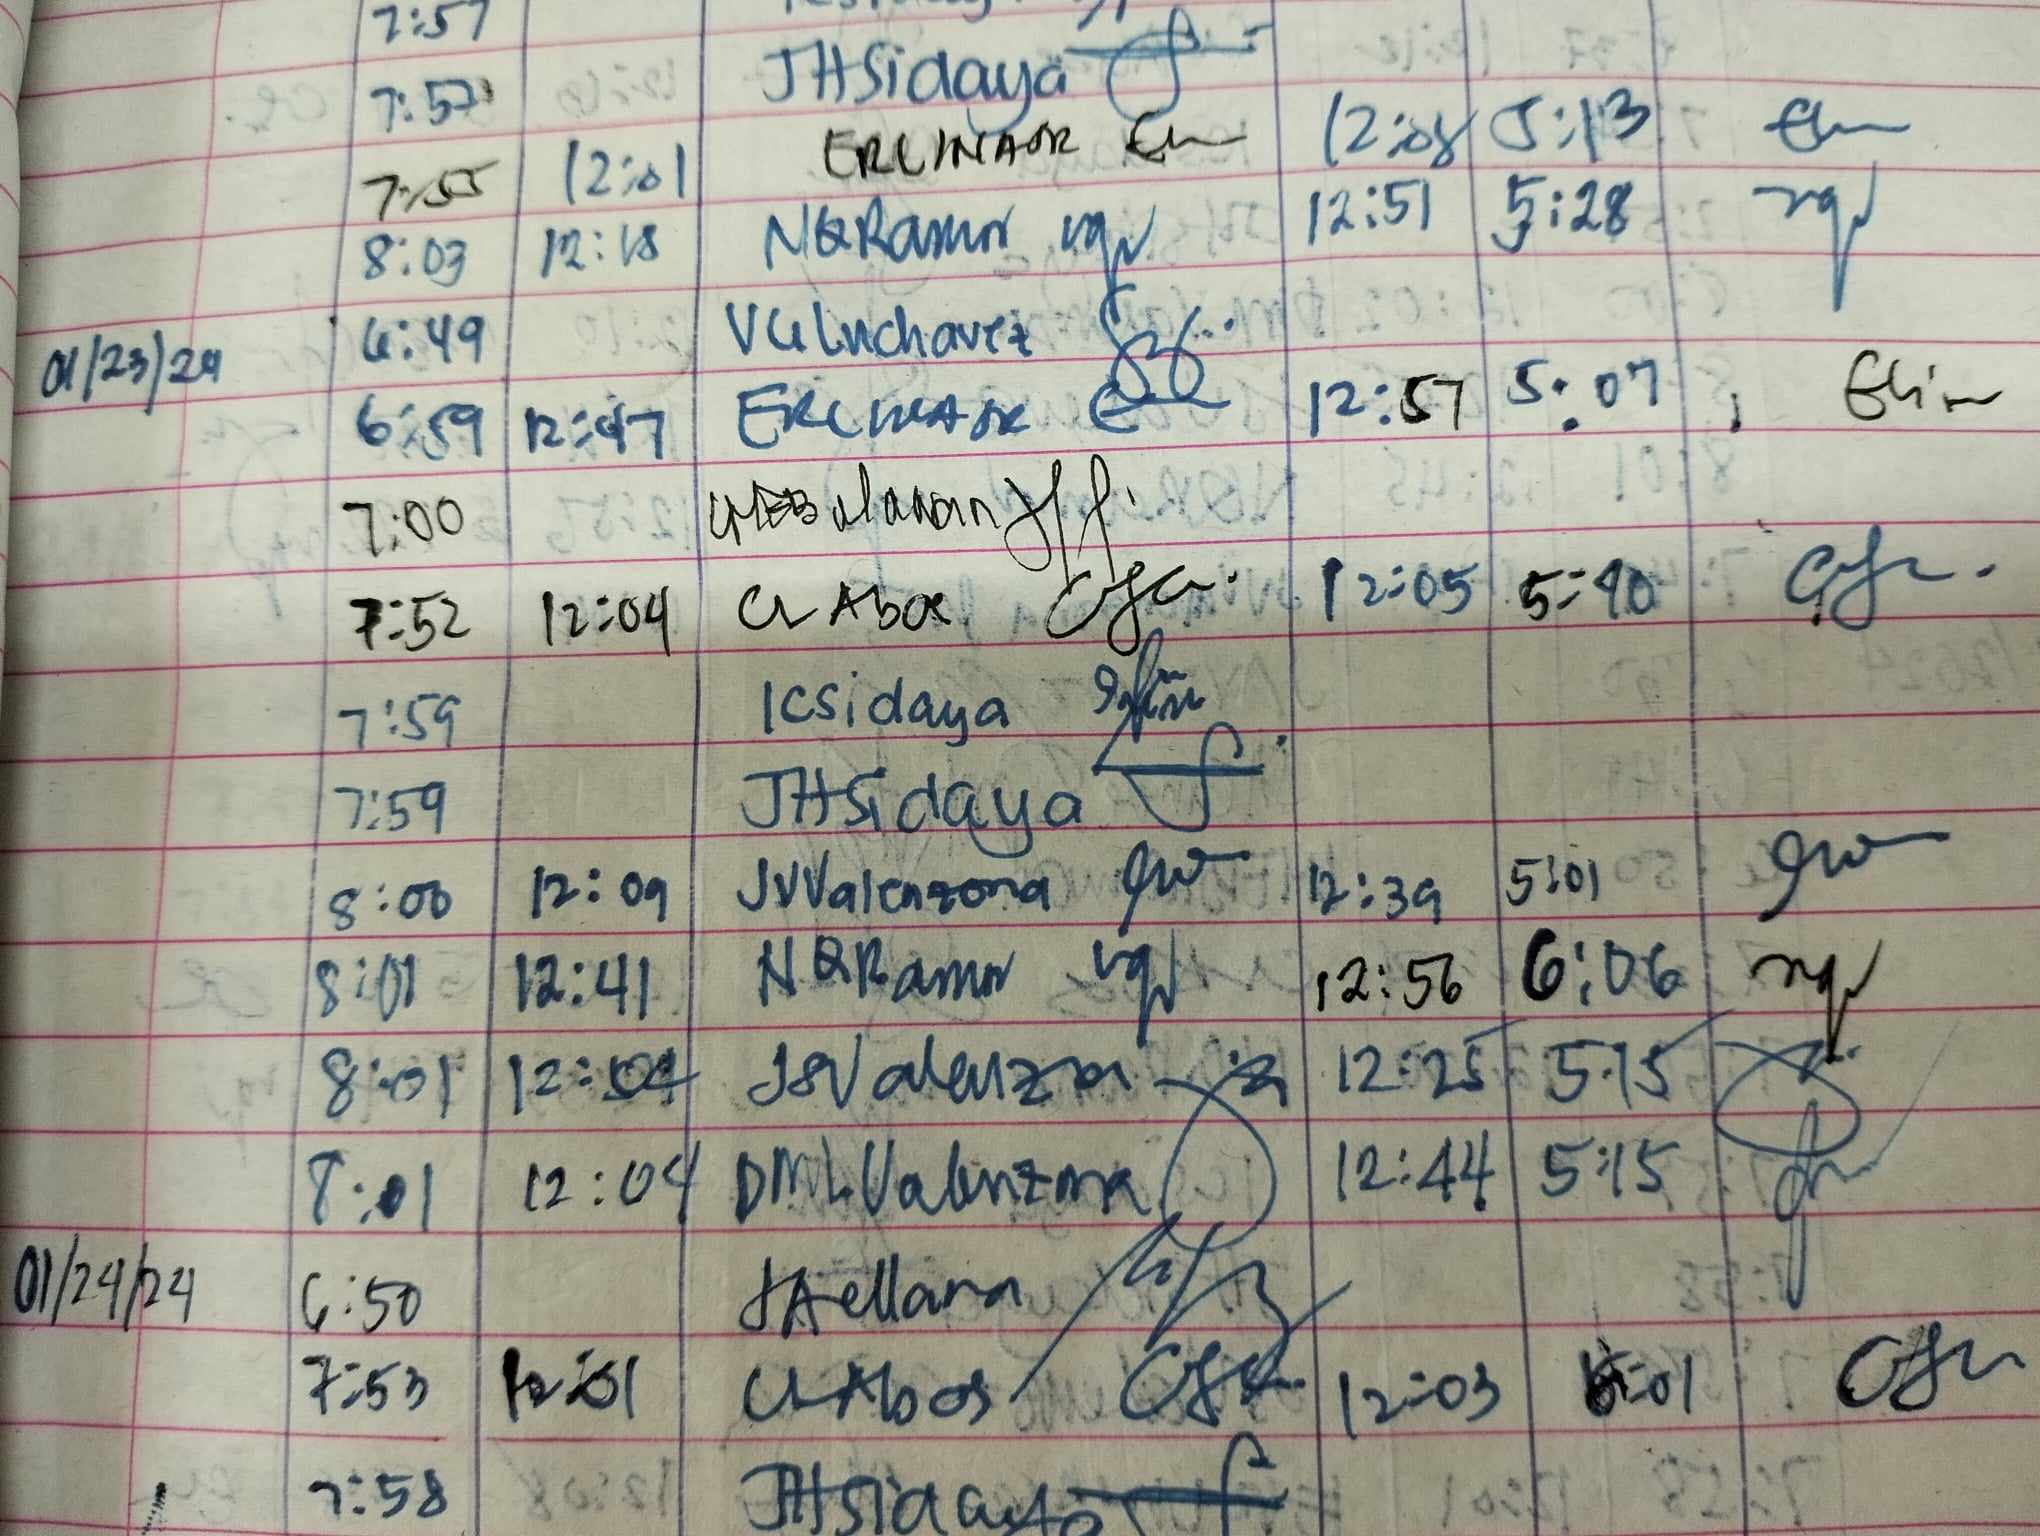 7:57
7:57 JHSidaya
7:55 12:01 ERLINAOR 12:08 5:13
8:03 12:18 NQRamor 12:51 5:28
01/23/24 6:49 VGLuchavez
6:59 12:47 ERLINAOR 12:57 5:07
7:00
7:52 12:04 CLAbos 12:05 5:40
7:59 ICSidaya
7:59 JHSidaya
8:00 12:09 JVValenzona 12:39 5:01
8:01 12:41 NQRamor 12:56 6:06
8:01 12:04 JSValenzona 12:25 5:15
8:01 12:04 DMLValenzona 12:44 5:15
01/24/24 6:50 JAellana
7:53 12:01 CLAbos 12:03 5:01
7:58 JHSidaya